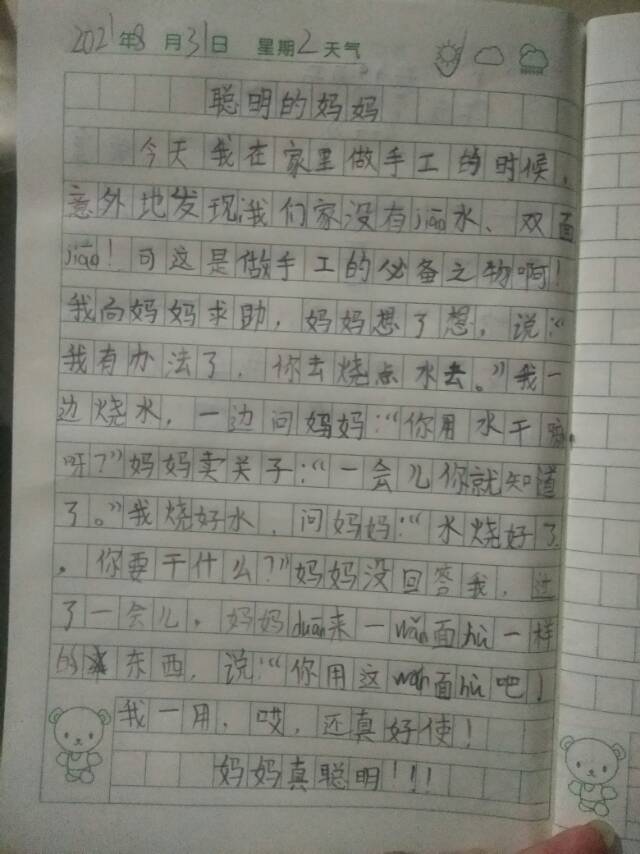 2021年8月31日 星期2天气
聪明的妈妈
今天我在家里做手工的时候,
意外地发现我们家没有jiāo水、双面
jiāo!可这是做手工的必备之物啊!
我向妈妈求助,妈妈想了想,说:“
我有办法了,你去烧点水去。”我一
边烧水,一边问妈妈:“你用水干嘛
呀?”妈妈卖关子:“一会儿你就知道
了。”我烧好水,问妈妈:“水烧好了
,你要干什么?”妈妈没回答我,过
了一会儿,妈妈duān来一wǎn面hú一样
的东西,说:“你用这wǎn面hú吧!
我一用,哎,还真好使!
妈妈真聪明!!!